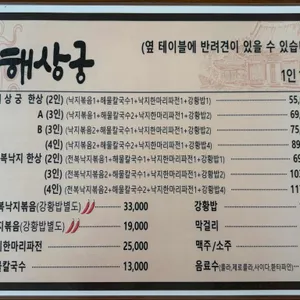 해상궁
(옆 테이블에 반려견이 있을 수 있습
1인
상 궁 한상 (2인) (낙지볶음1+해물칼국수1+낙지한마리파전1+강황밥1) 55,
A (3인) (낙지볶음1+해물칼국수2+낙지한마리파전1+강황밥2) 69,
B (3인) (낙지볶음2+해물칼국수1+낙지한마리파전1+강황밥2) 75,
(4인) (낙지볶음2+해물칼국수2+낙지한마리파전1+강황밥2) 89,
복낙지 한상 (2인) (전복낙지볶음1+해물칼국수1+낙지한마리파전1+강황밥1) 69,
(3인) (전복낙지볶음2+해물칼국수1+낙지한마리파전1+강황밥2) 103
(4인) (전복낙지볶음2+해물칼국수2+낙지한마리파전1+강황밥4) 117
복낙지볶음(강황밥별도) 33,000 강황밥
지볶음(강황밥별도) 19,000 막걸리
지한마리파전 25,000 맥주/소주
물칼국수 13,000 음료수(콜라,제로콜라,사이다,환타파인)